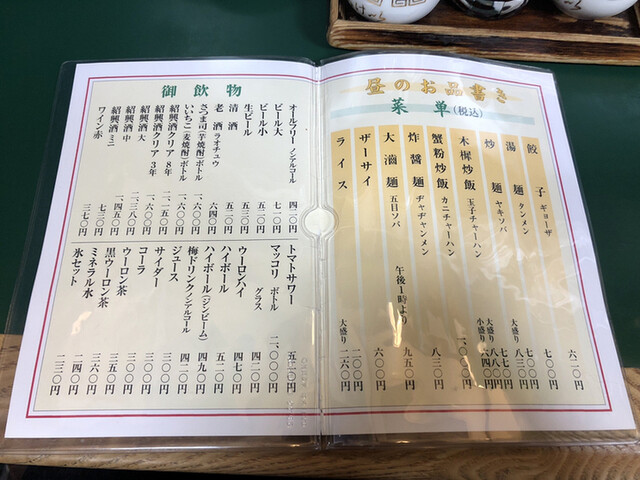 昼のお品書き
菜単(税込)
餃子 ギョーザ 六二〇円
湯麺 タンメン 七〇〇円
大盛り 八三〇円
炒麺 ヤキソバ 七七〇円
大盛り 八八〇円
小盛り
木樨炒飯 玉子チャーハン 一、〇〇〇円
蟹粉炒飯 カニチャーハン 八三〇円
炸醤麺 ヂャヂャンメン 九五〇円
大滷麺 五目ソバ 午後1時より
ザーサイ 六〇〇円
ライス 二〇〇円
大盛り 二六〇円
御飲物
オールフリー ノンアルコール 四二〇円
ビール大 七一〇円
ビール小 五二〇円
生ビール 五三〇円
清酒 五二〇円
老酒 ラオチュウ 六四〇円
さつま司(芋焼酎)ボトル 一、六〇〇円
いいちこ(麦焼酎)ボトル 一、六〇〇円
紹興酒クリア8年
紹興酒クリア3年 一、六〇〇円
紹興酒大 二、三八〇円
紹興酒中 一、四五〇円
紹興酒ミニ 七三〇円
ワイン赤 三七〇円
トマトサワー 五二〇円
マッコリ ボトル 二、〇〇〇円
グラス 四二〇円
ウーロンハイ 四七〇円
ハイボール 五二〇円
ハイボール(ジンビーム) 四九〇円
梅ドリンクノンアルコール 四二〇円
ジュース 三〇〇円
サイダー 三〇〇円
コーラ 三〇〇円
ウーロン茶 三五〇円
黒ウーロン茶 三六〇円
ミネラル水 二四〇円
氷セット 二三〇円